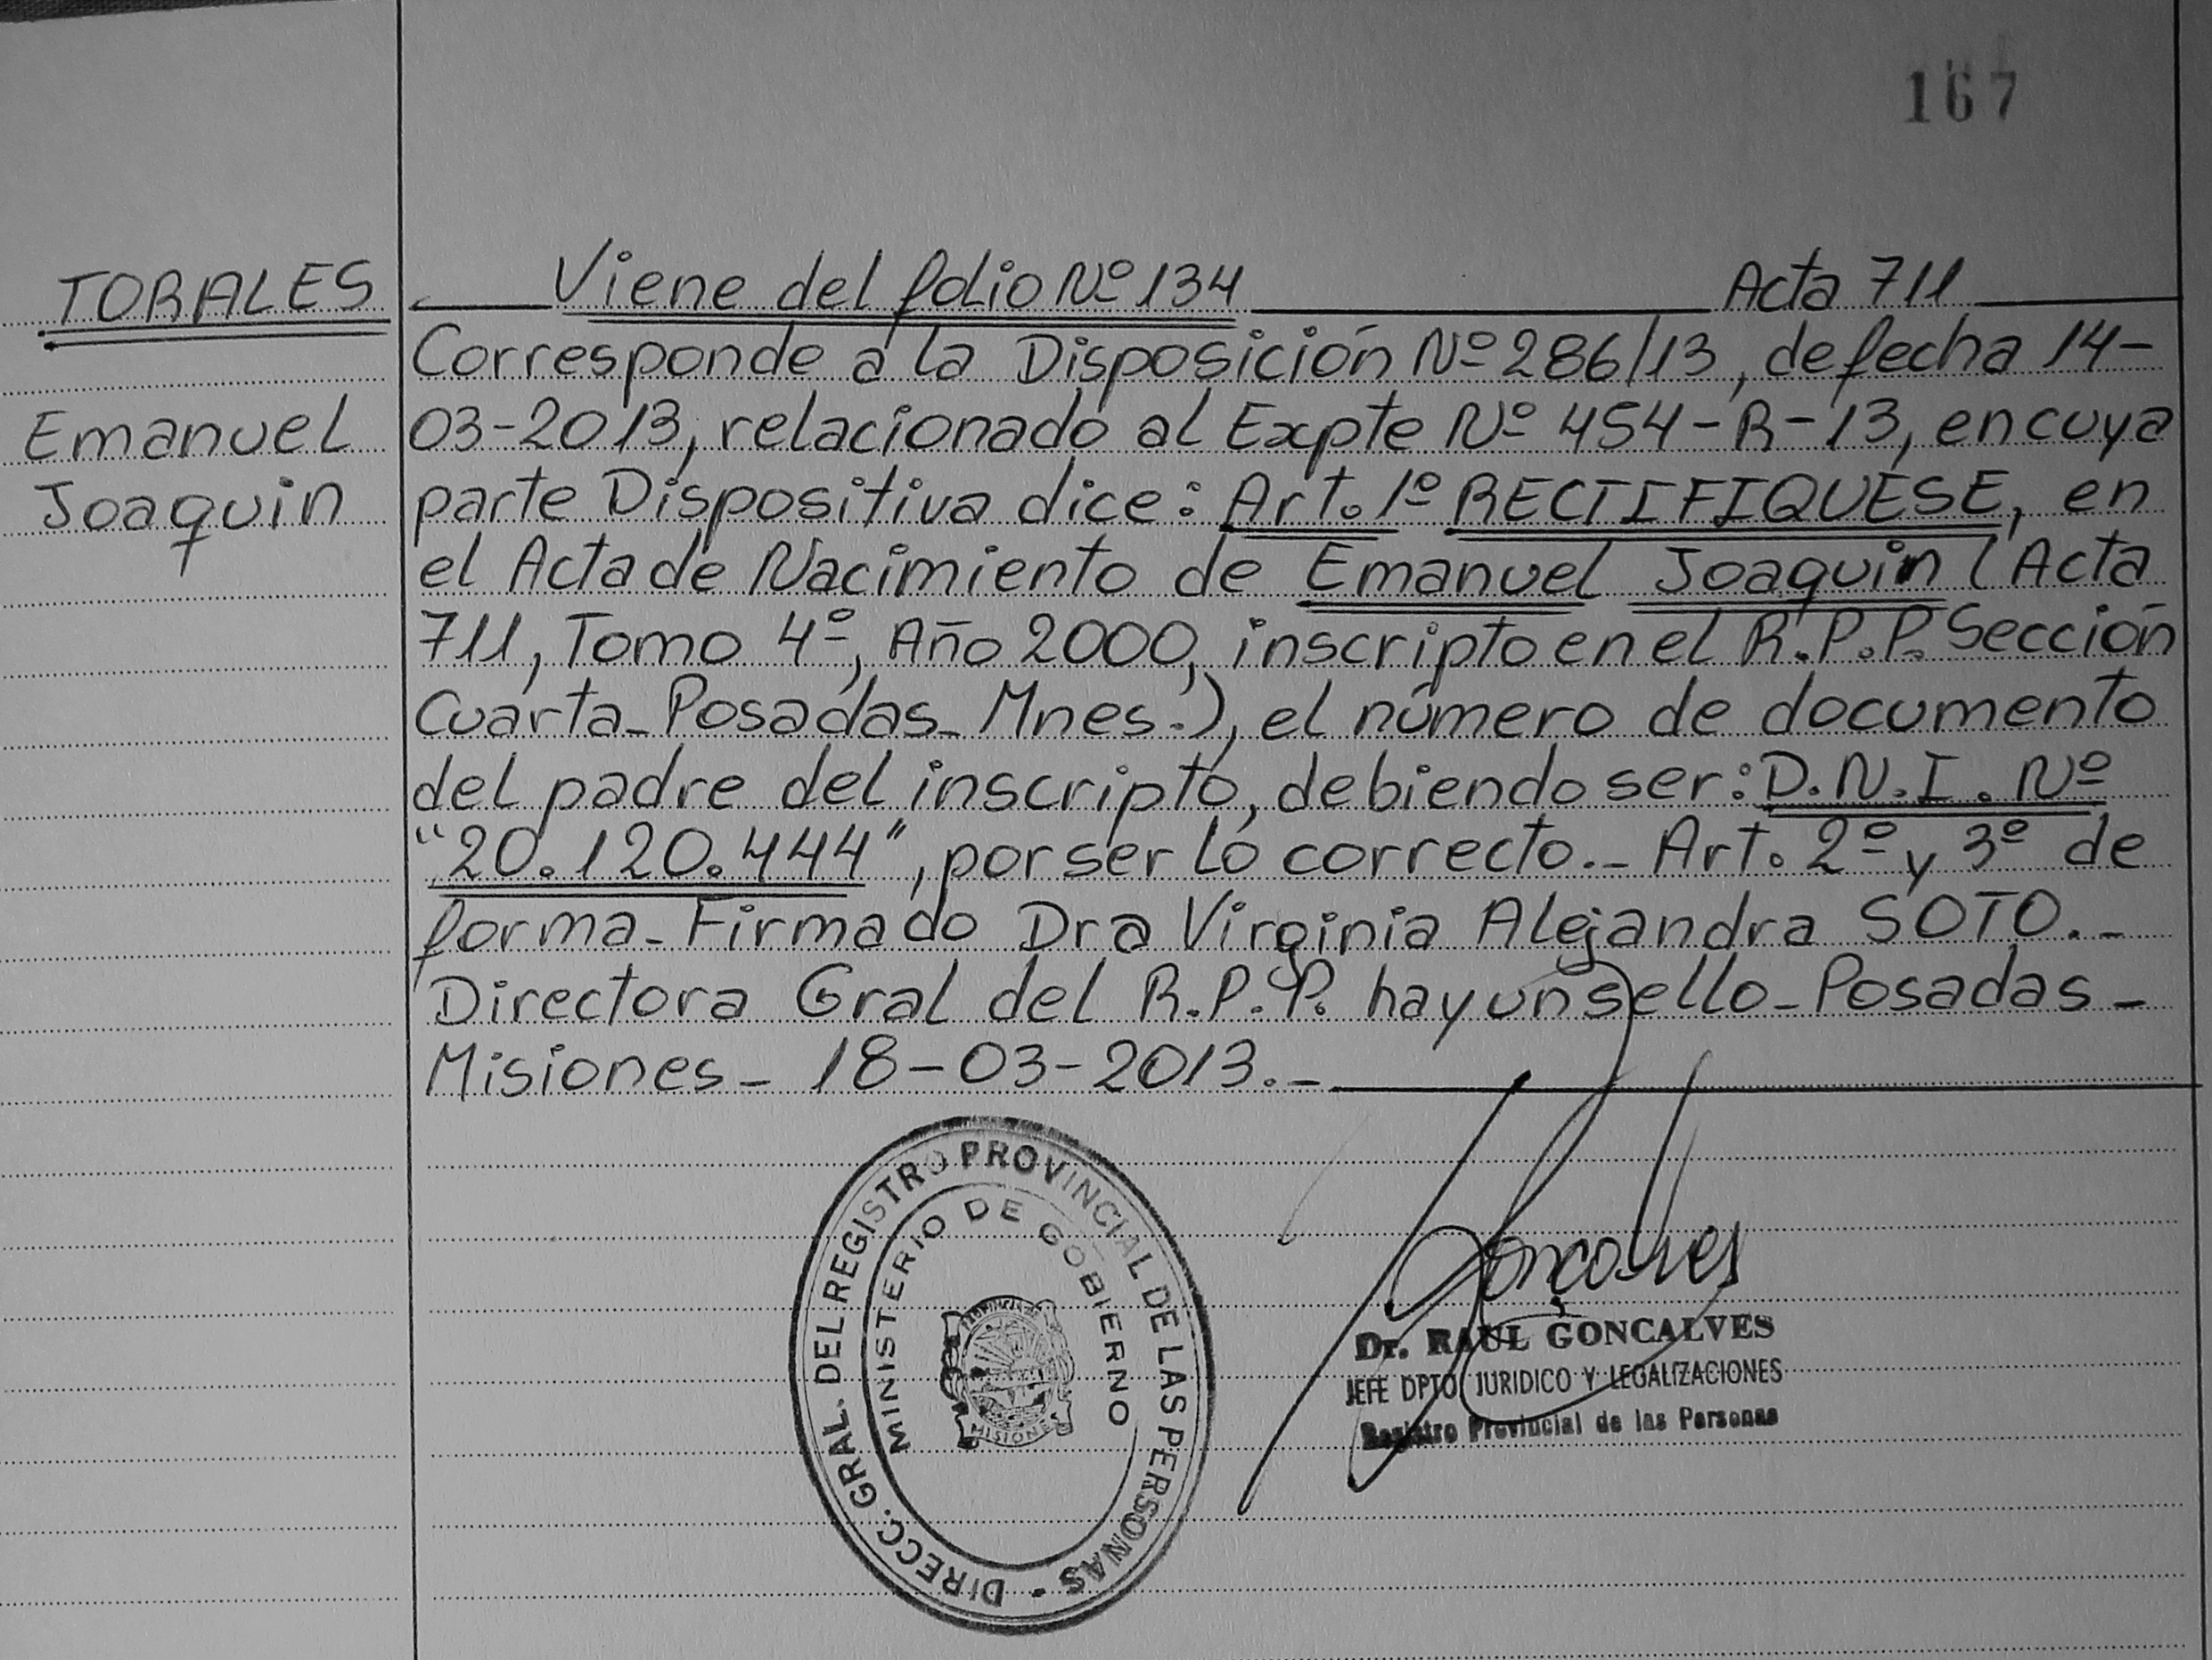 167
TORALES
Emanuel
Joaquin
Viene del folio Nº 134 Acta 711
Corresponde a la Disposición Nº 286/13, de fecha 14-
03-2013, relacionado al Expte Nº 454-R-13, en cuya
parte Dispositiva dice: Art. 1º RECTIFIQUESE, en
el Acta de Nacimiento de Emanuel Joaquin (Acta
711, Tomo 4º, Año 2000, inscripto en el R.P.P. Sección
Cuarta_ Posadas_ Mnes.), el número de documento
del padre del inscripto, debiendo ser: D.N.I. Nº
"20.120.444", por ser lo correcto._ Art. 2º y 3º de
forma_ Firmado Dra Virginia Alejandra SOTO._
Directora Gral del R.P.P. hay un sello_ Posadas_
Misiones_ 18-03-2013._
DIRECC. GRAL. DEL REGISTRO PROVINCIAL DE LAS PERSONAS -
MINISTERIO DE GOBIERNO
PROVINCIA DE
MISIONES
Goncalves
Dr. RAUL GONCALVES
JEFE DPTO JURIDICO Y LEGALIZACIONES
Registro Provincial de las Personas